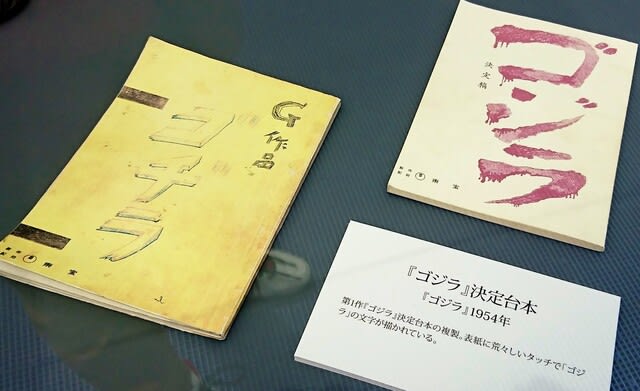 G作品
東宝
ゴジラ
決定稿
東宝
『ゴジラ』決定台本
『ゴジラ』1954年
第1作『ゴジラ』決定台本の複製。表紙に荒々しいタッチで「ゴジ
ラ」の文字が描かれている。